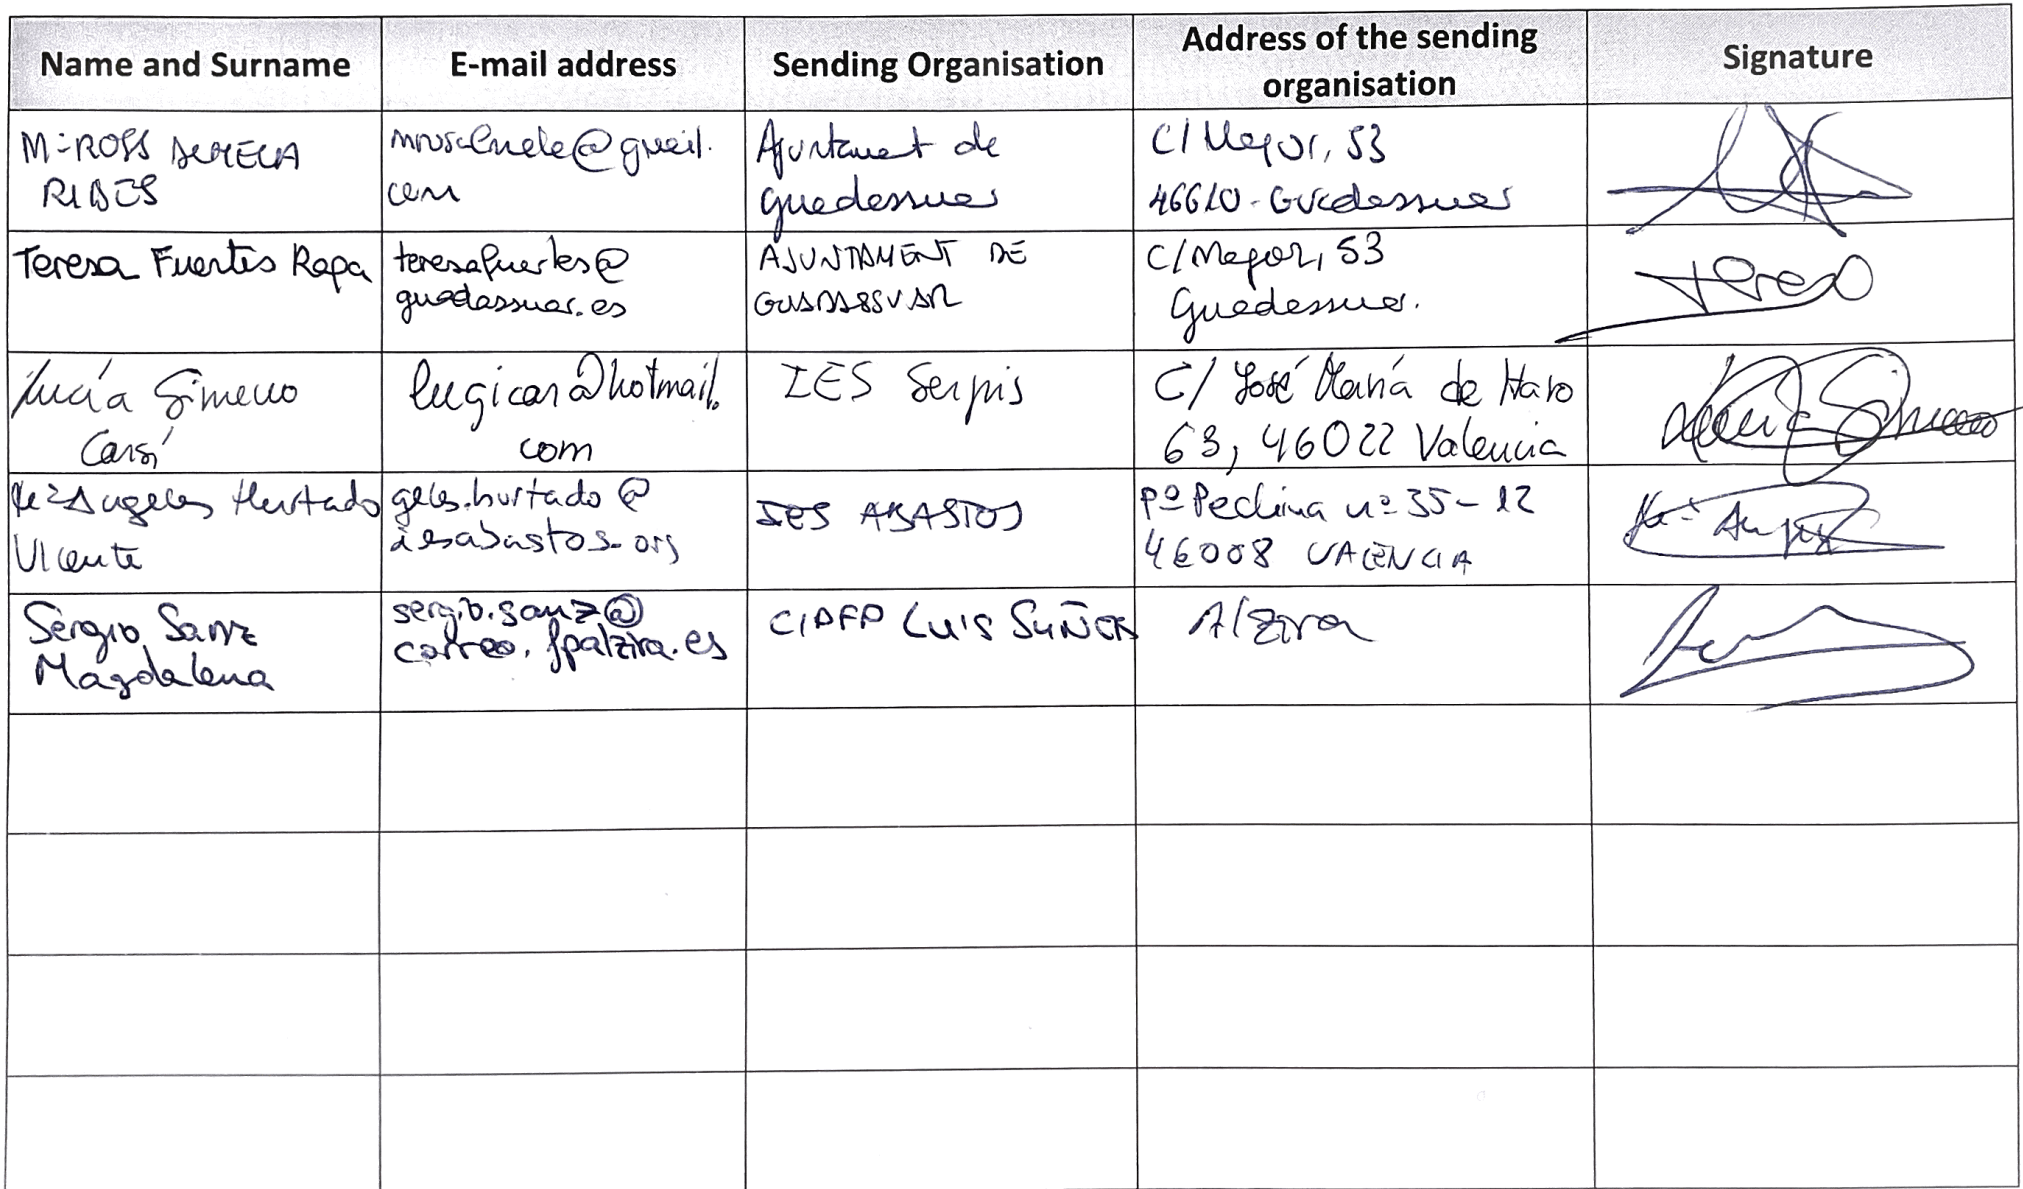 Name and Surname
E-mail address
Sending Organisation
Address of the sending
organisation
Signature
Mª ROSA ALMELA
RIBES
@gmail.
com
Ajuntament de
Guadassuar
C/ Major, 53
46610 - Guadassuar
Teresa Fuertes Rapa
teresafuertes@
guadassuar.es
AJUNTAMENT DE
GUADASSUAR
C/ Major, 53
Guadassuar.
Teresa
Lucía Gimeno
Carsí
lugicar@hotmail.
com
IES Serpis
C/ José María de Haro
63, 46022 Valencia
Lucía Gimeno
Mª Angeles Hurtado
Vicente
geles.hurtado@
iesabastos.org
IES ABASTOS
Pº Pechina nº 35-12
46008 VALENCIA
Sergio Sanz
Magdalena
sergio.sanz@
correo.fpalzira.es
CIPFP LUIS SUÑER
Alzira